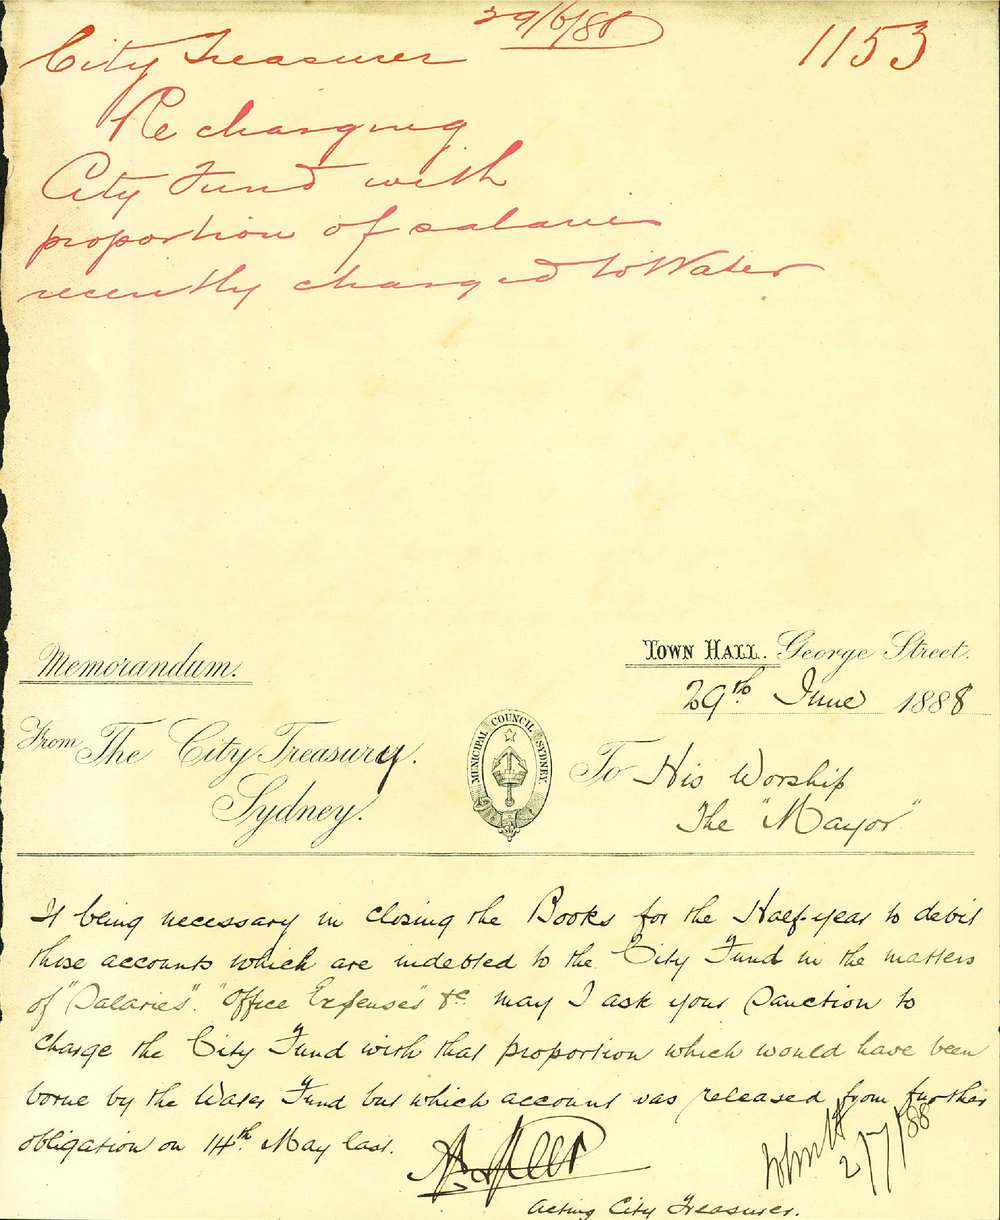 29/6/88
1153
City Treasurer
Re charging
City Fund with
proportion of salaries
recently charged to Water
Memorandum.
Town Hall. George Street.
29th June 1888
From The City Treasury.
Sydney.
MUNICIPAL COUNCIL SYDNEY
To His Worship
The "Mayor"
It being necessary in closing the Books for the Half-year to debit
those accounts which are indebted to the City Fund in the matters
of "Salaries". "Office Expenses" &c. may I ask your Sanction to
charge the City Fund with that proportion which would have been
borne by the Water Fund but which account was released from further
obligation on 14th May last.
2/7/88
Acting City Treasurer.